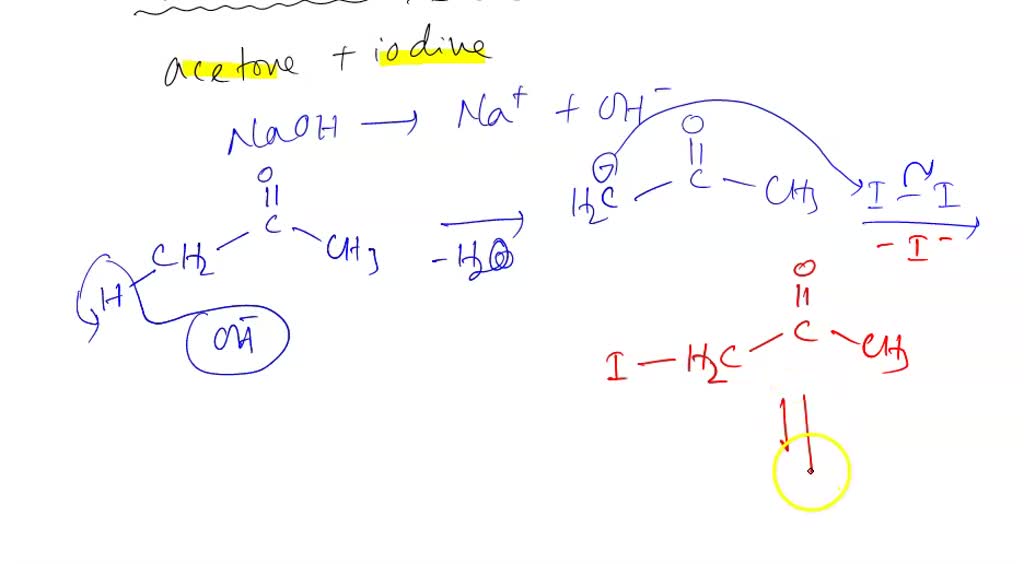 acetone + iodine
NaOH → Na⁺ + OH⁻
O
||
H - CH₂ - C - CH₃
OH⁻
- H₂O
O
||
⊖
H₂C - C - CH₃
I - I
- I⁻
O
||
I - H₂C - C - CH₃